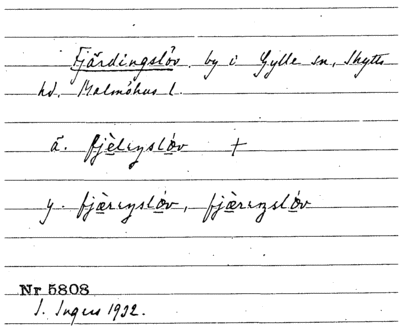 Fjärdingslöv. by i Gylle sn, Skytts
hd. Malmöhus l.
ä. fjèlıŋslóv +
y. fjæ̀rıŋslóv, fjæ̀rıŋslóv
Nr 5808
I. Ingers 1932.